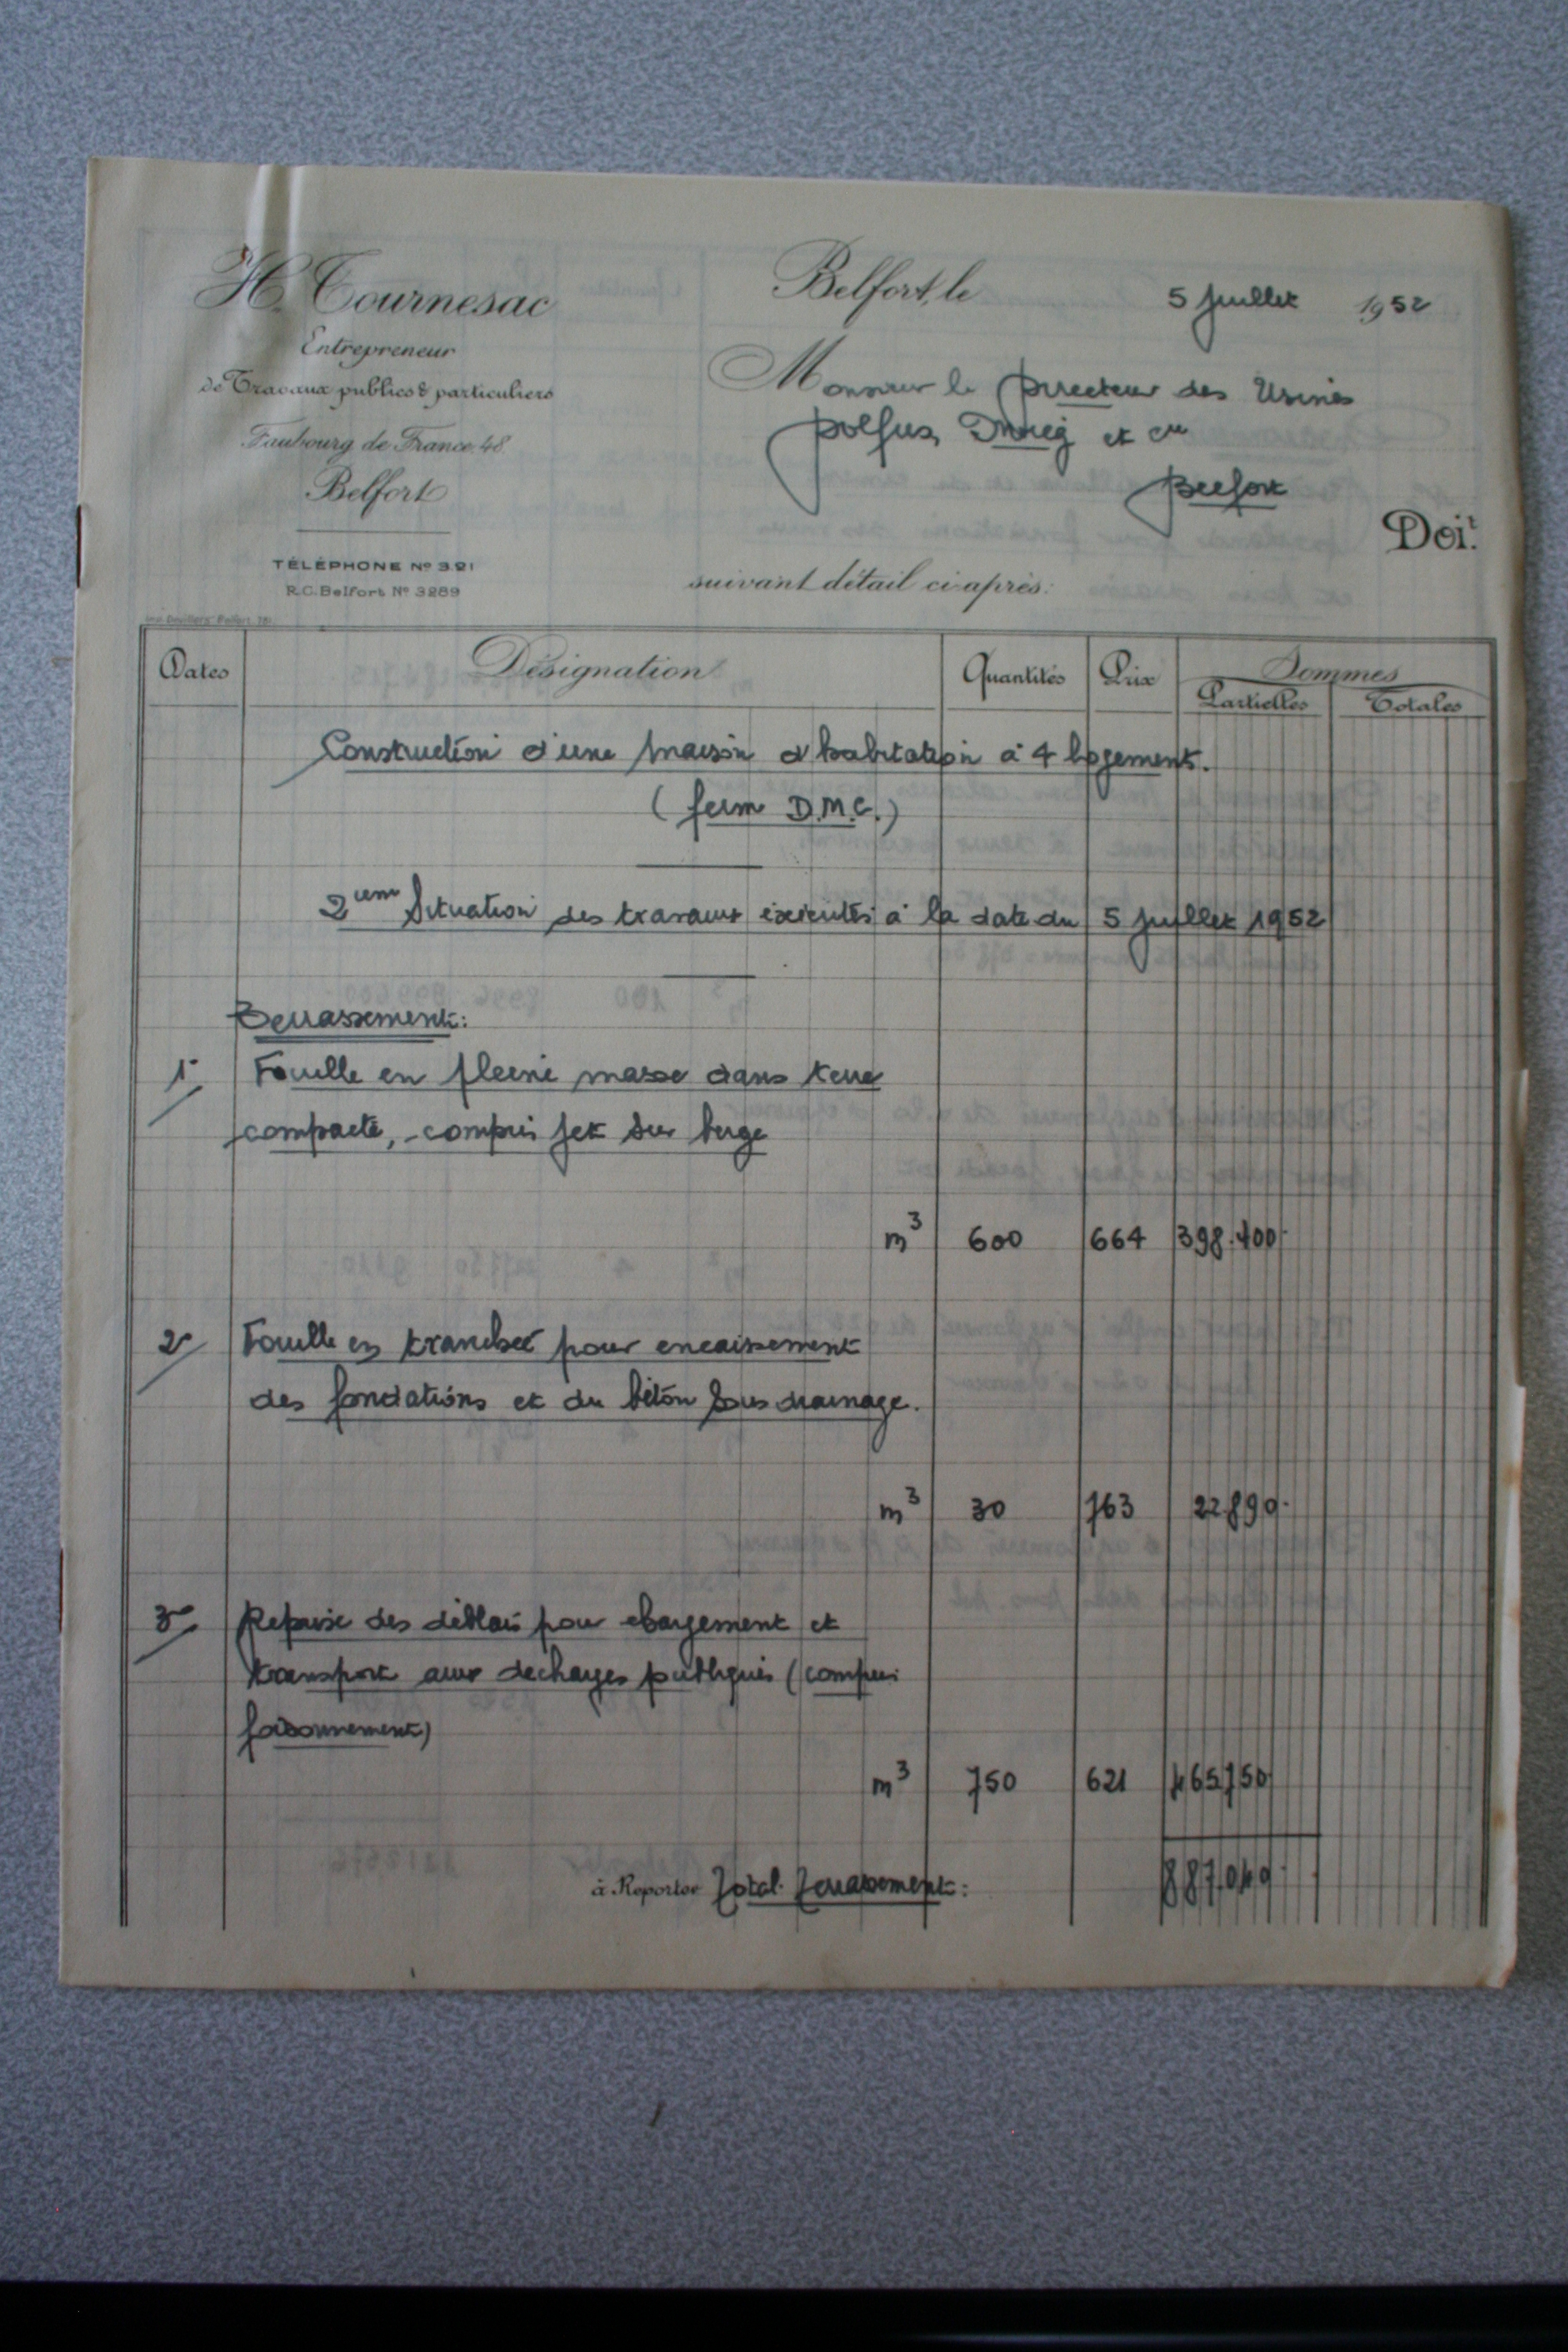 H. Tournesac
Entrepreneur
de Travaux publics & particuliers
Faubourg de France, 48
Belfort
TÉLÉPHONE Nº 321
R.C. Belfort Nº 3289
Belfort, le 5 Juillet 1952
Monsieur le Directeur des Usines
Dolfus, Mieg et Cie
Belfort
Doit
suivant détail ci-après:
Dates Désignation Quantités Prix Sommes
Partielles Totales
Construction d'une maison d'habitation à 4 logements.
(ferm D.M.C.)
2iem Situation des travaux exécutés à la date du 5 Juillet 1952
Terrassement:
1° Fouille en pleine masse dans terre
compacte, compris jet sur berge
m3 600 664 398.400
2° Fouille en tranchée pour encaissement
des fondations et du béton sous drainage.
m3 30 763 22.890
3° Reprise des déblais pour chargement et
transport aux décharges publiques (compris
foisonnement)
m3 750 621 465.750
à Reporter Total Terrassement: 887.040